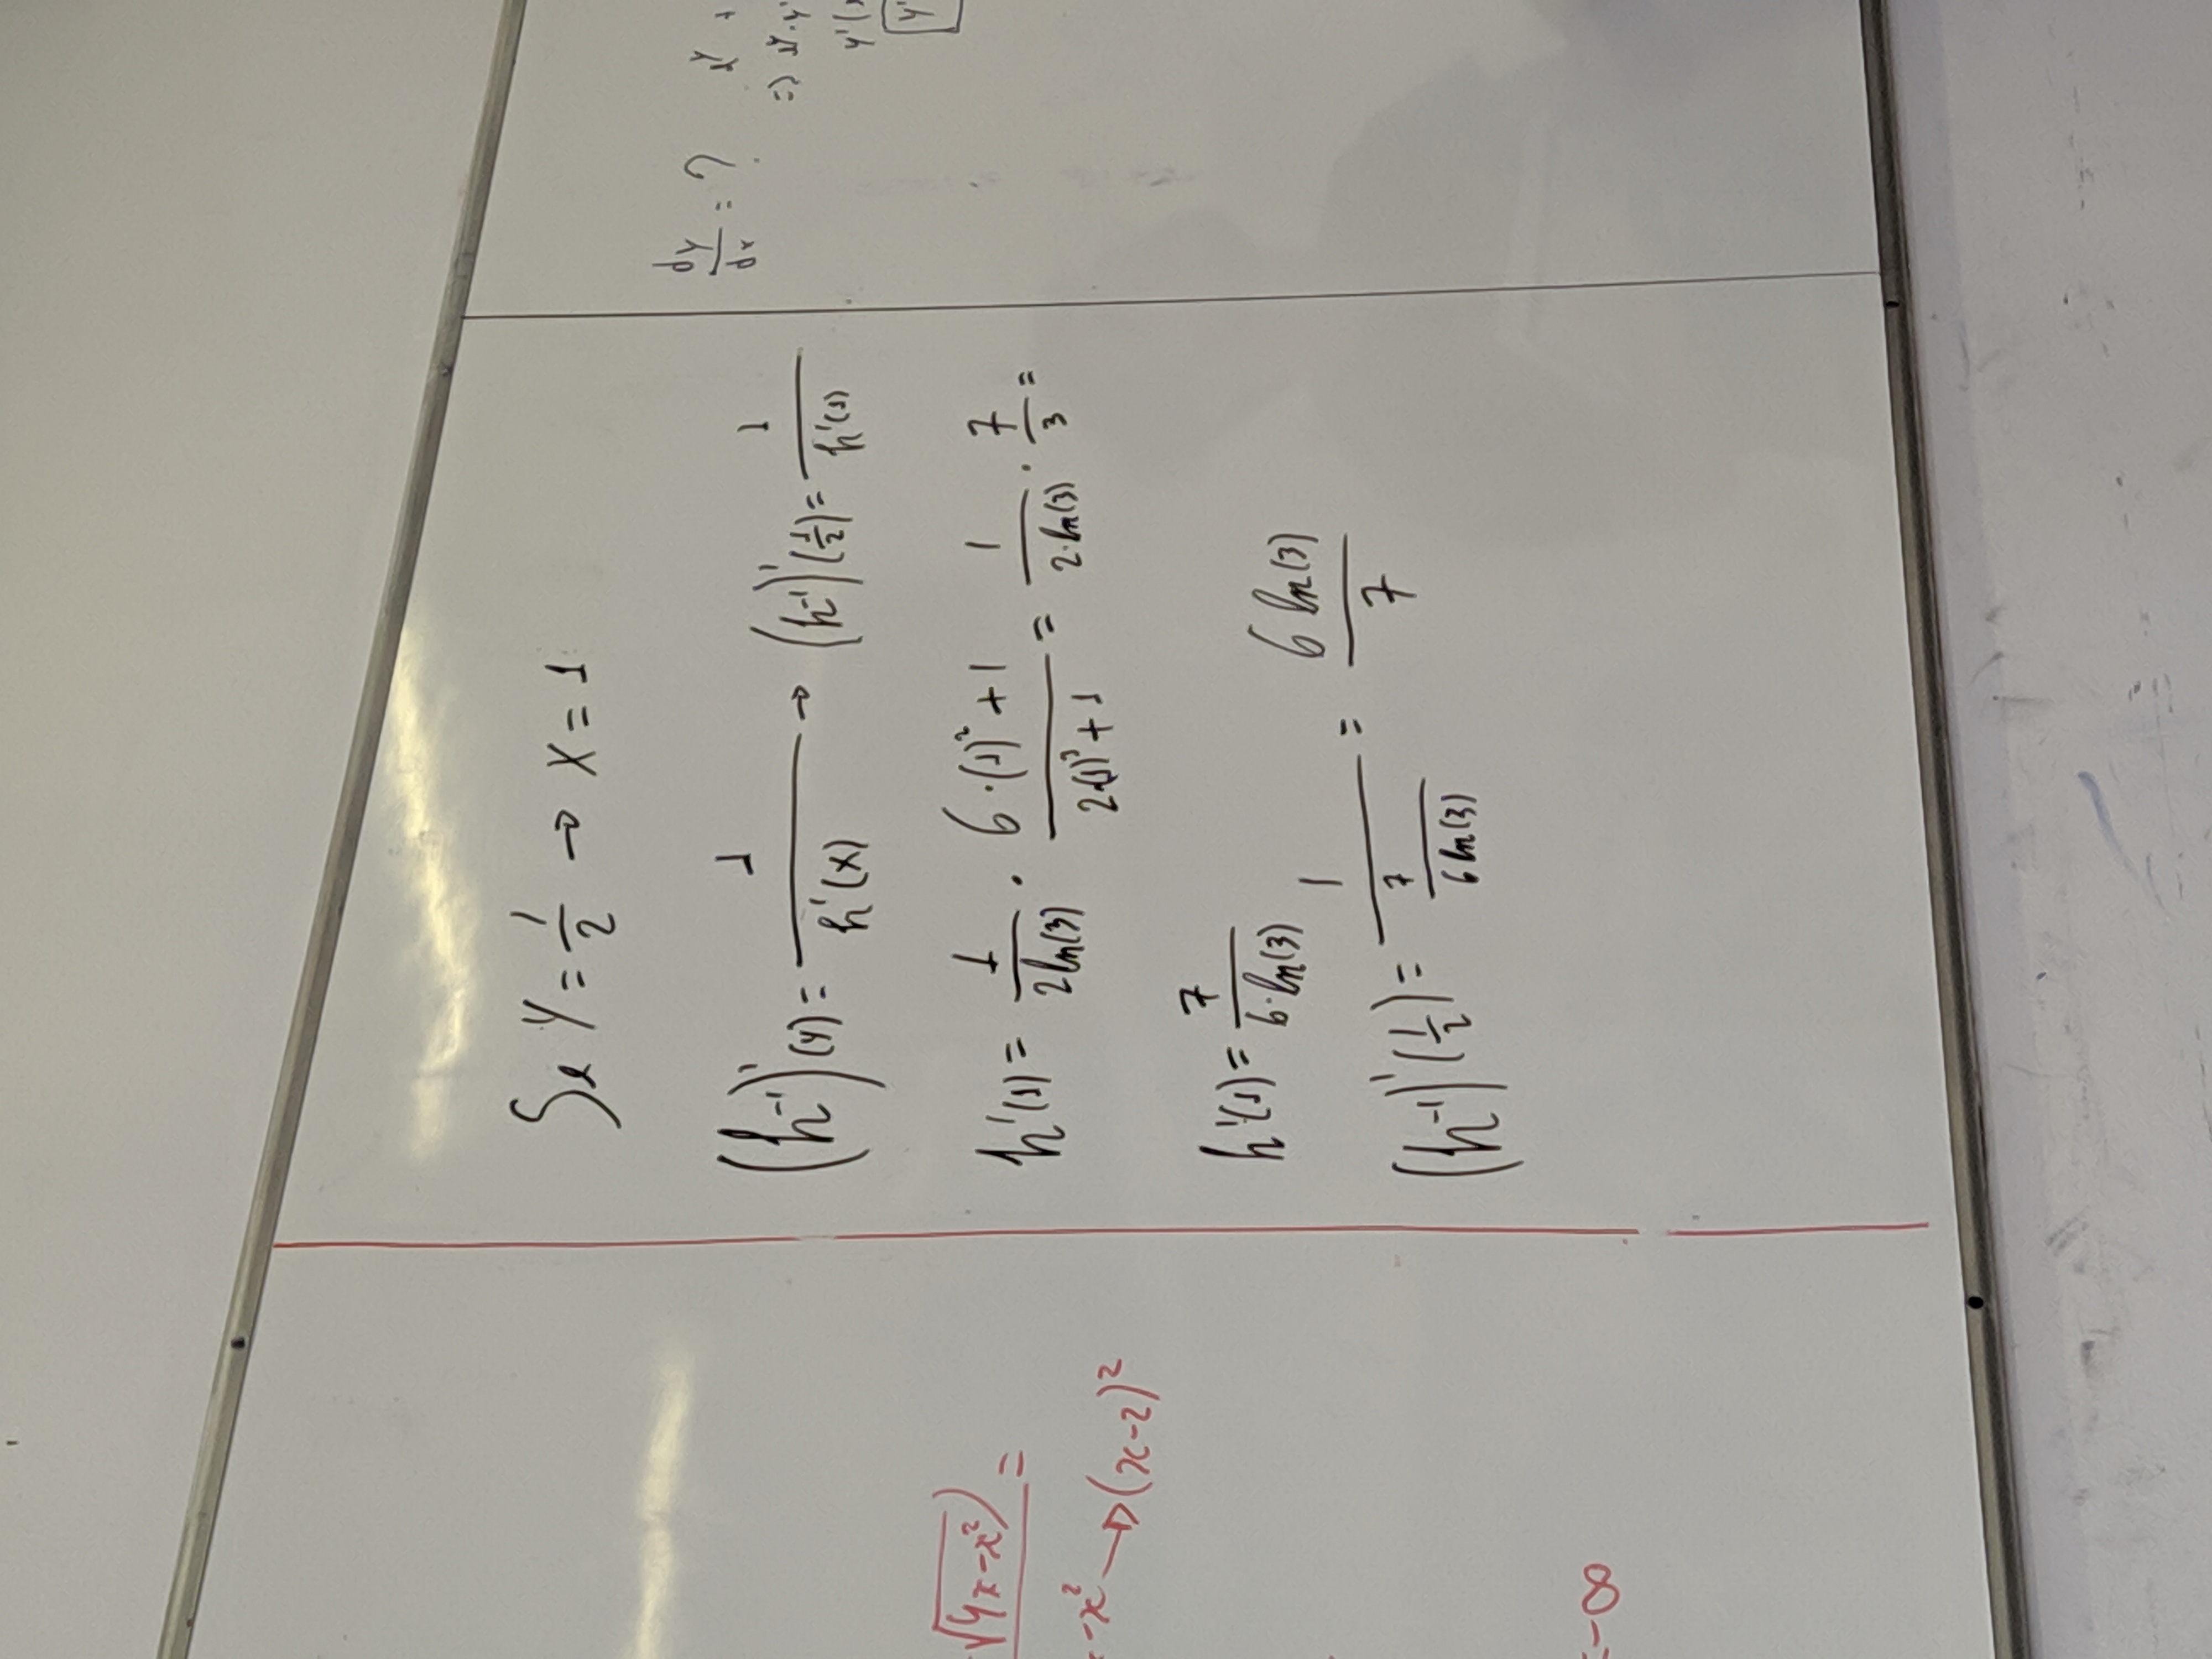 √(4x-x²)) =
-x² → (x-2)²
=-∞
Se y = 1/2 → x = 1
(h⁻¹)'(y) = 1/h'(x) → (h⁻¹)'(1/2) = 1/h'(1)
h'(1) = 1/(2ln(3)) · (6·(1)²+1)/(2·(1)³+1) = 1/(2·ln(3)) · 7/3 =
h'(1) = 7/(6·ln(3))
(h⁻¹)'(1/2) = 1/(7/(6 ln(3))) = 6 ln(3)/7
dy/dx = ?